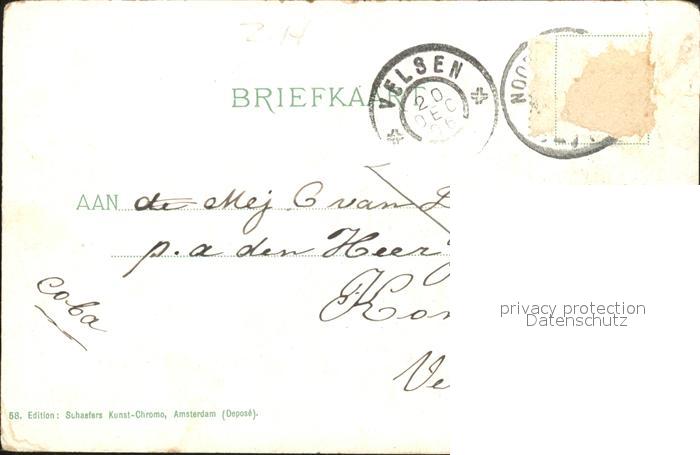 BRIEFKAART
VELSEN
20
DEC
06
NOO
AAN de Mej. C van
p. a den Heer
coba
privacy protection
Datenschutz
58. Edition: Schaefers Kunst-Chromo, Amsterdam (Deposé).